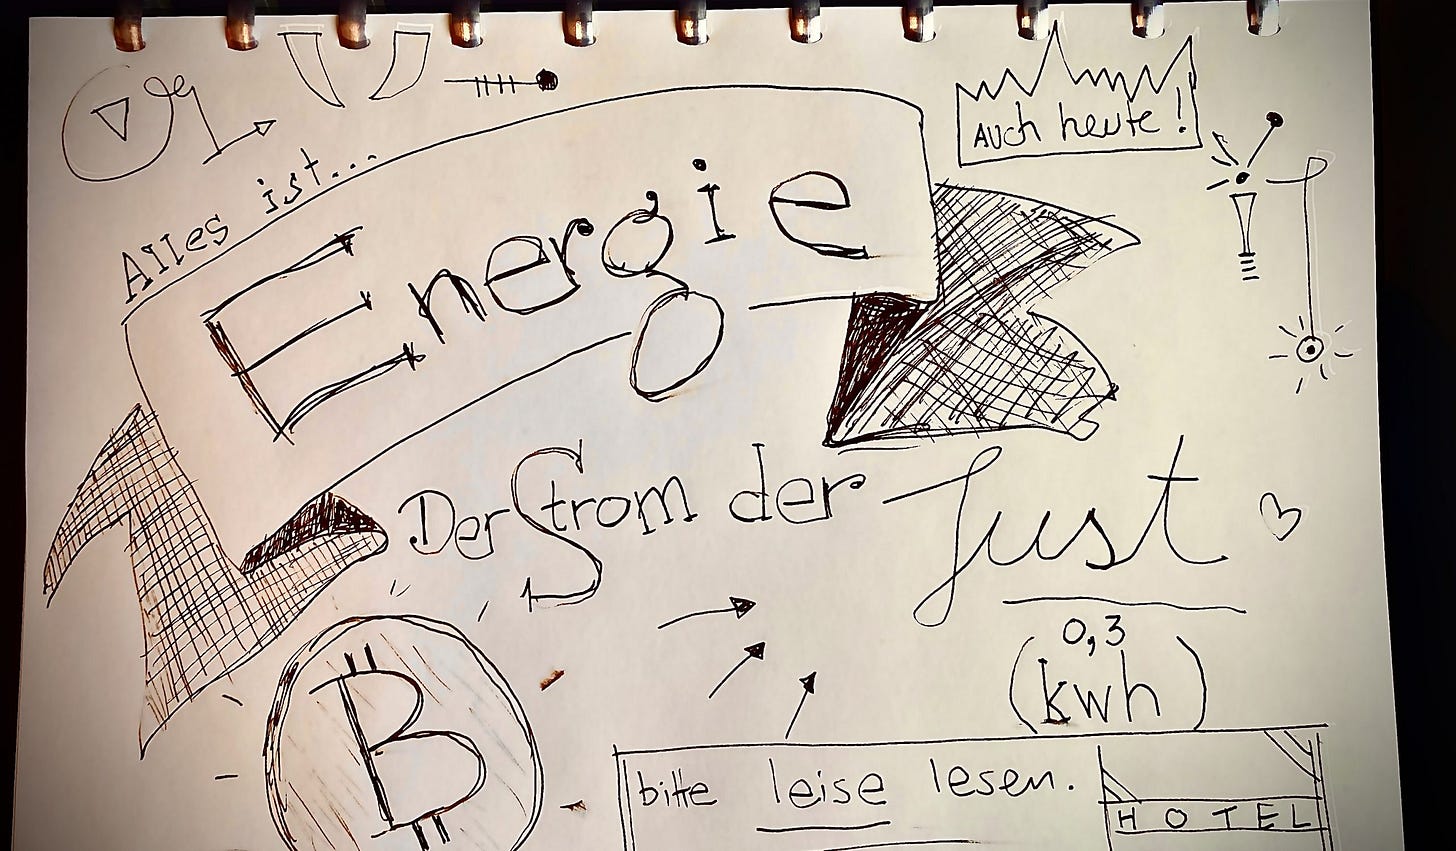 Auch heute!
Alles ist...
Energie
Der Strom der Just
0,3
(kwh)
B
bitte leise lesen.
HOTEL